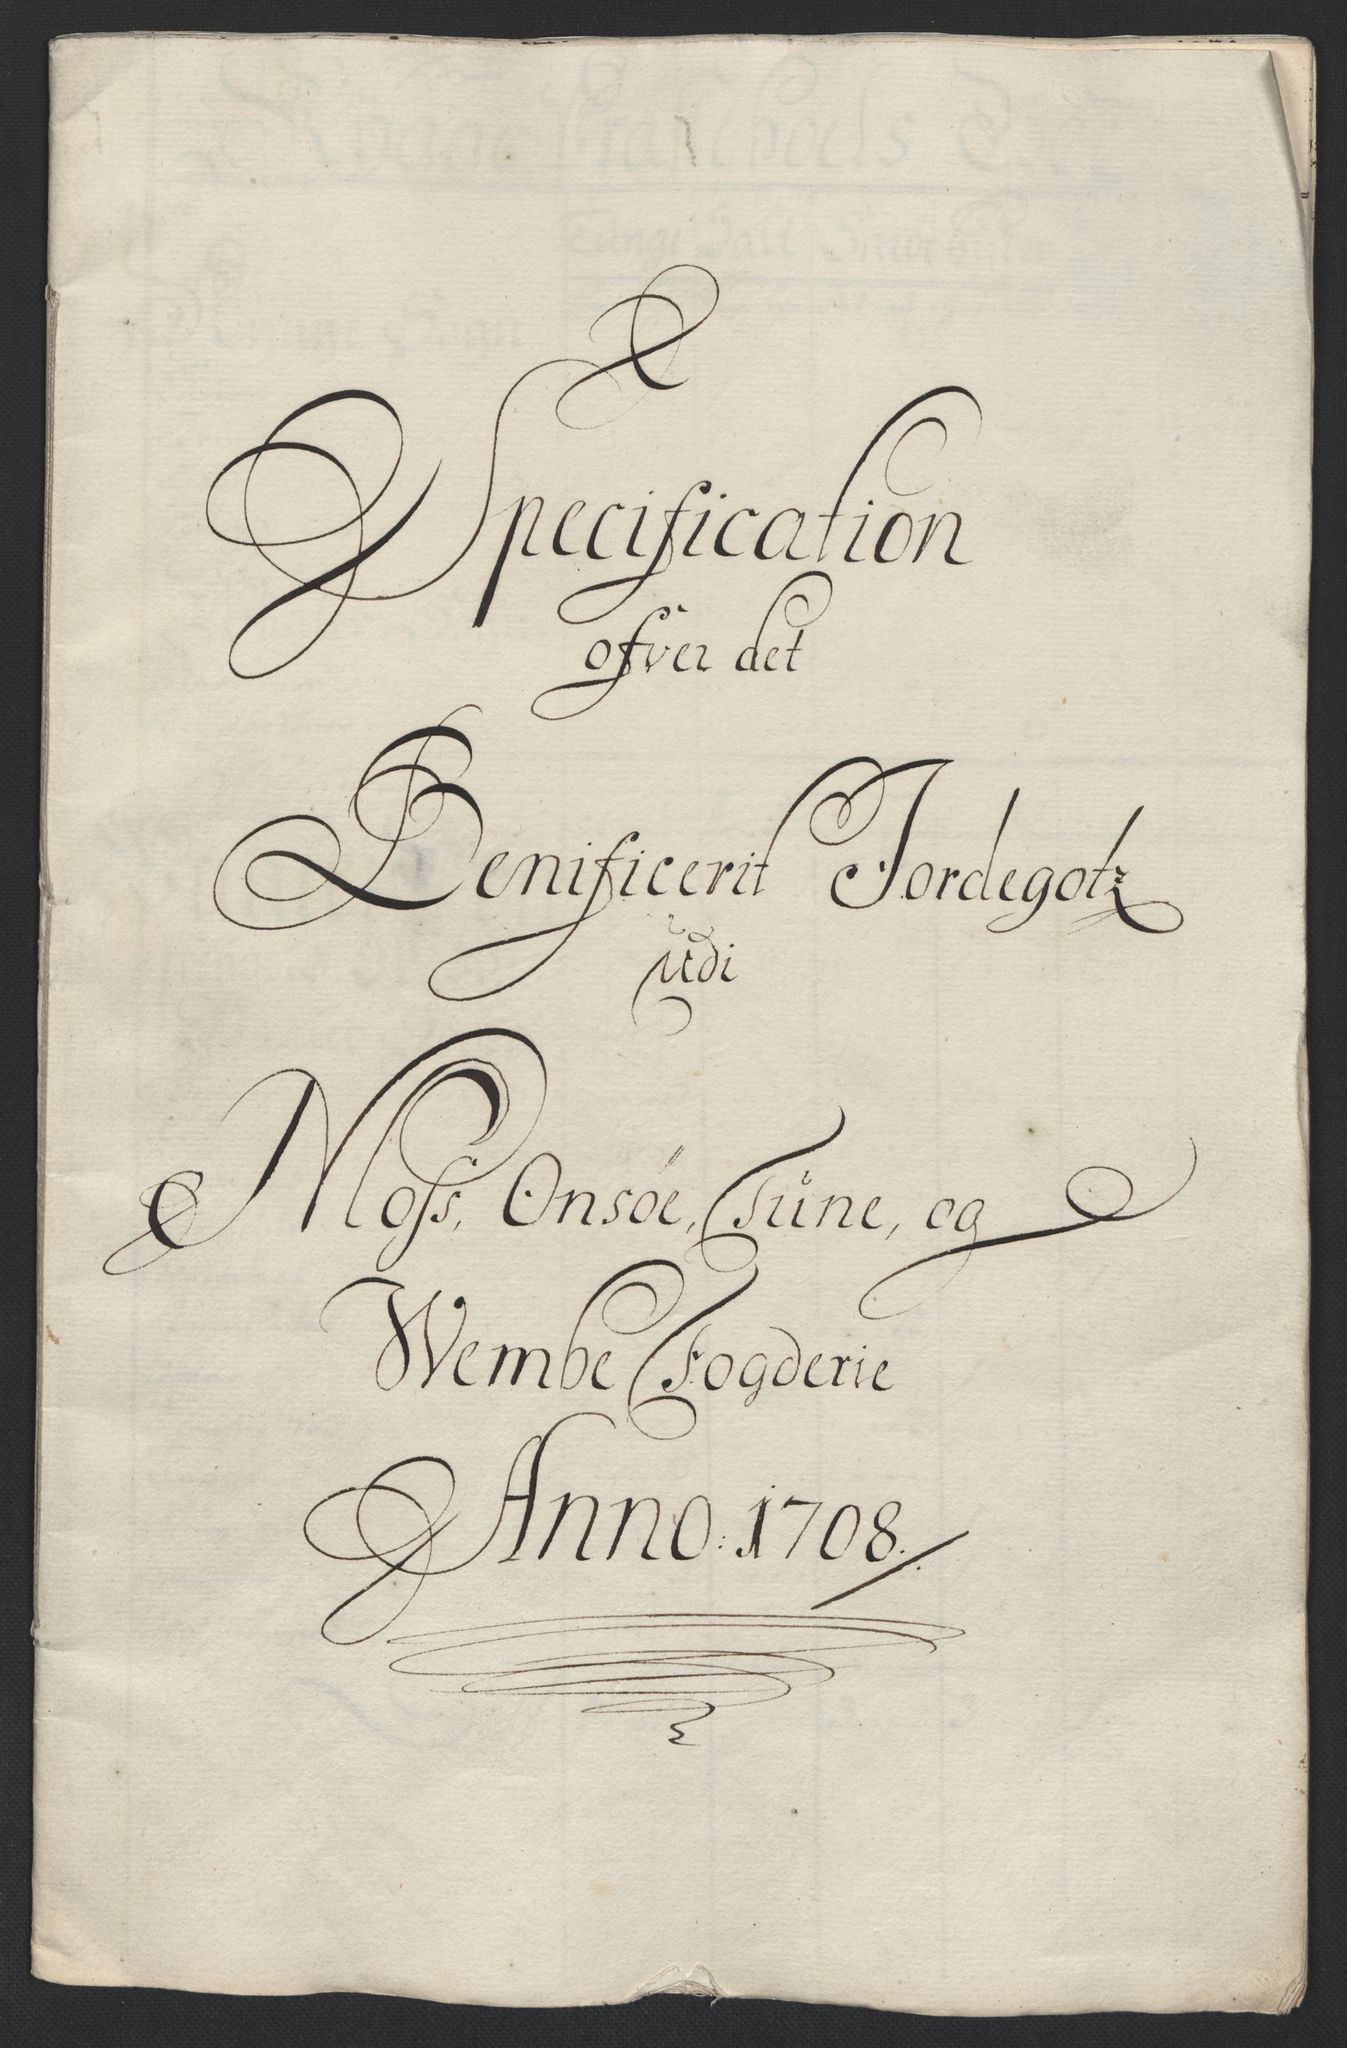 Specification
ofver det
Benificerit Jordegotz
udi
Moss, Onsöe, Tune, og
Wembe Fogderie
Anno. 1708.